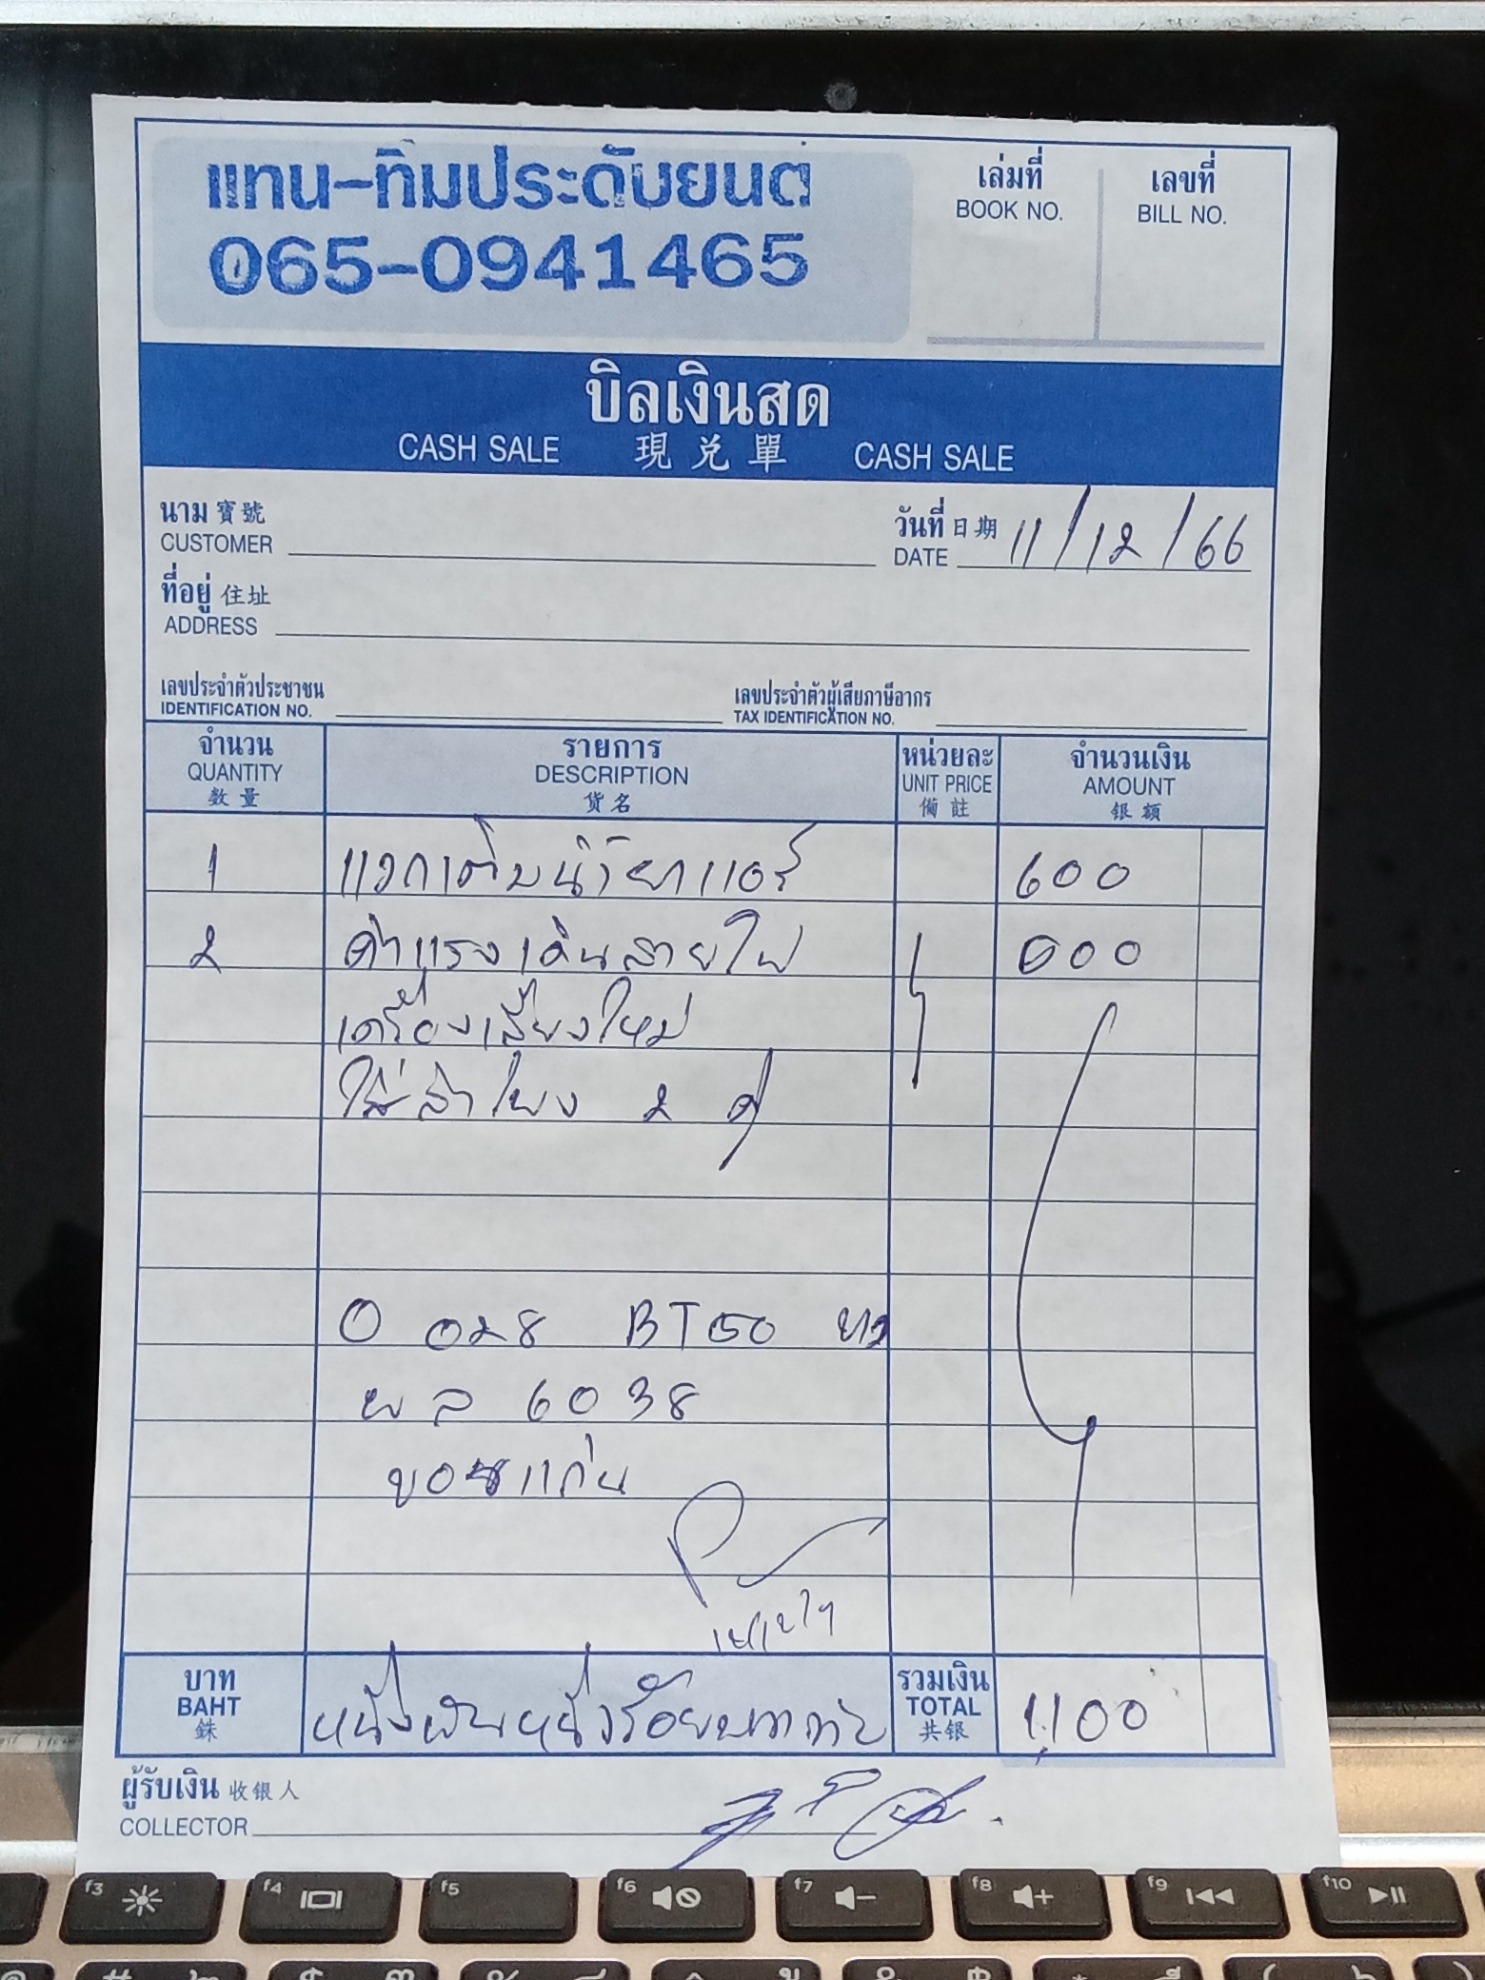 แทน-ทิมประดับยนต์
065-0941465
เล่มที่
BOOK NO.
เลขที่
BILL NO.
บิลเงินสด
CASH SALE 現兌單 CASH SALE
นาม 寶號
CUSTOMER
วันที่ 日期 11/12/66
DATE
ที่อยู่ 住址
ADDRESS
เลขประจำตัวประชาชน
IDENTIFICATION NO.
เลขประจำตัวผู้เสียภาษีอากร
TAX IDENTIFICATION NO.
จำนวน รายการ หน่วยละ จำนวนเงิน
QUANTITY DESCRIPTION UNIT PRICE AMOUNT
數量 貨名 備註 銀額
1 แวกเติมน้ำยาแอร์ 600
2 ค่าแรงเดินสายไฟ 500
เครื่องเสียงใหม่
ใส่ลำโพง 2 คู่
028 BT50
ผล 6038
ขอนแก่น
บาท
BAHT
銖
หนึ่งพันหนึ่งร้อยบาทถ้วน
รวมเงิน
TOTAL
共銀
1,100
ผู้รับเงิน 收銀人
COLLECTOR
f3 f4 f5 f6 f7 f8 f9 f10